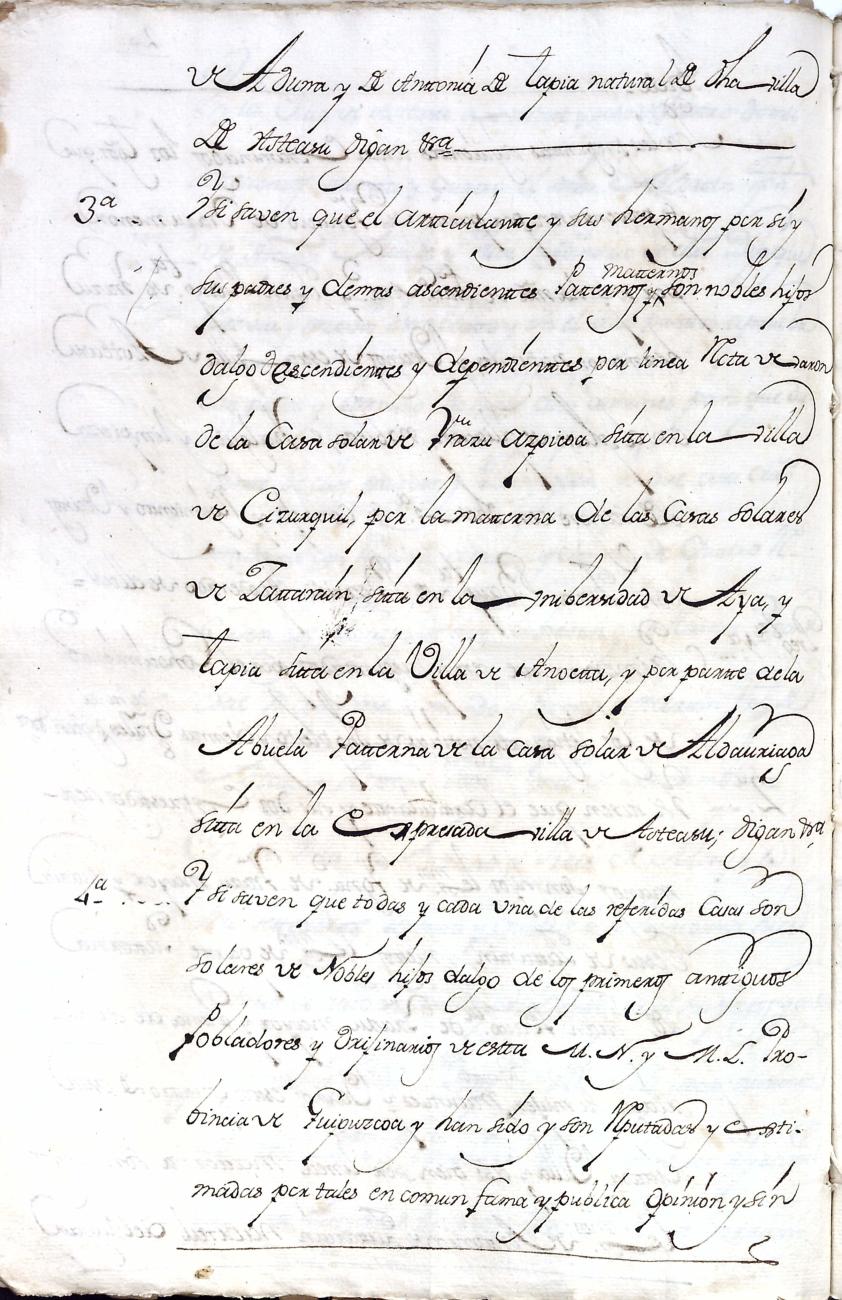 de Aduna y de Antonia de Tapia natural de dha villa
de Asteasu digan &ra
3ª Y si saven que el articulante y sus hermanos por sí y
sus padres y demas ascendientes Patternos y matternos son nobles hijos
dalgo descendientes y dependientes por linea Recta de varon
de la Casa solar de Yraru azpicoa sitta en la villa
de Cizurquil, por la matterna de las Casas solares
de Zattarain, sitta en la Unibersidad de Aya, y
Tapia sitta en la Villa de Anoetta, y por partte de la
Abuela Patterna de la Casa solar de Aldauriaga
sitta en la expresada villa de Asteasu; digan &ra
4ª Y si saven que todas y cada una de las referidas Casas son
solares de Nobles hijos dalgo de los primeros antiguos
Pobladores y Orijinarios de estta M. N. y M. L. Pro-
bincia de Guipuzcoa y han sido y son Reputadas y esti-
madas por tales en comun fama y publica opinion y sin